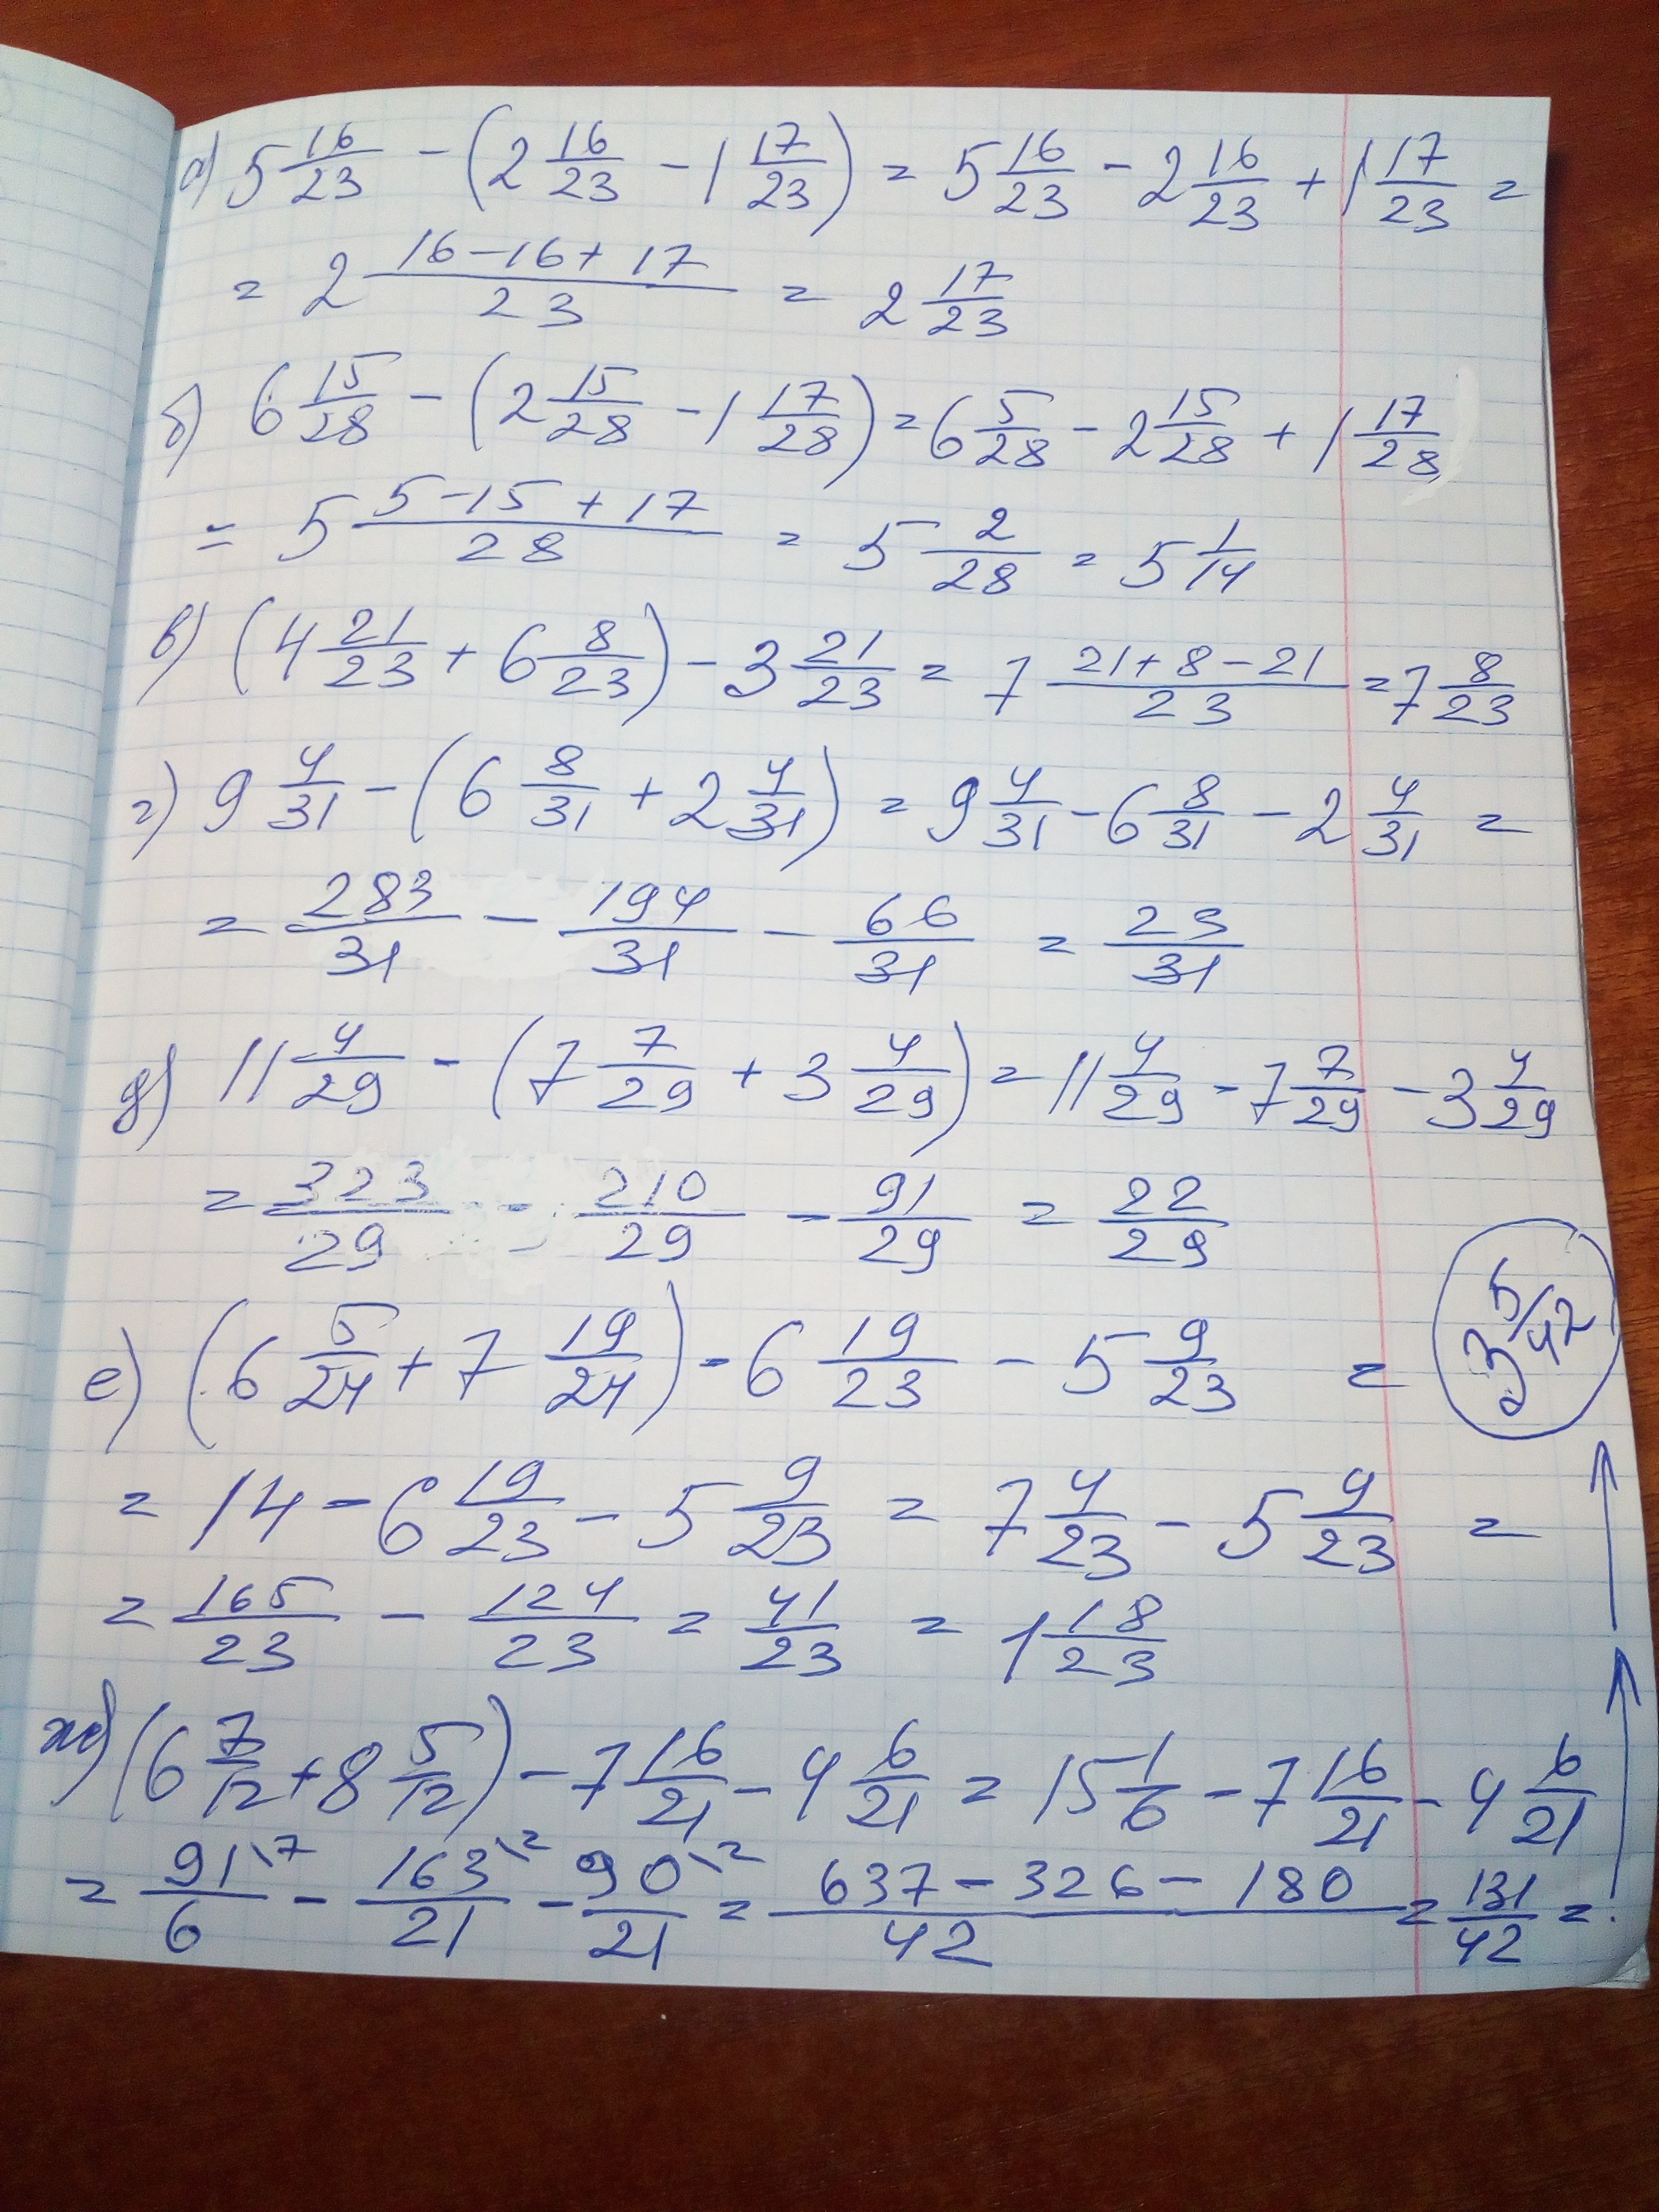 а) 5 16/23 - (2 16/23 - 1 17/23) = 5 16/23 - 2 16/23 + 1 17/23 =
= 2 (16-16+17)/23 = 2 17/23
б) 6 15/28 - (2 15/28 - 1 17/28) = 6 5/28 - 2 15/28 + 1 17/28
= 5 (5-15+17)/28 = 5 2/28 = 5 1/14
в) (4 21/23 + 6 8/23) - 3 21/23 = 7 (21+8-21)/23 = 7 8/23
г) 9 4/31 - (6 8/31 + 2 4/31) = 9 4/31 - 6 8/31 - 2 4/31 =
= 283/31 - 194/31 - 66/31 = 23/31
д) 11 4/29 - (7 7/29 + 3 4/29) = 11 4/29 - 7 7/29 - 3 4/29
= 323/29 - 210/29 - 91/29 = 22/29
е) (6 5/24 + 7 19/24) - 6 19/23 - 5 9/23 =
3 5/42
= 14 - 6 19/23 - 5 9/23 = 7 4/23 - 5 9/23 =
= 165/23 - 124/23 = 41/23 = 1 18/23
ж) (6 7/12 + 8 5/12) - 7 16/21 - 4 6/21 = 15 1/6 - 7 16/21 - 4 6/21
= 91\7/6 - 163\2/21 - 90\2/21 = (637 - 326 - 180)/42 = 131/42 =